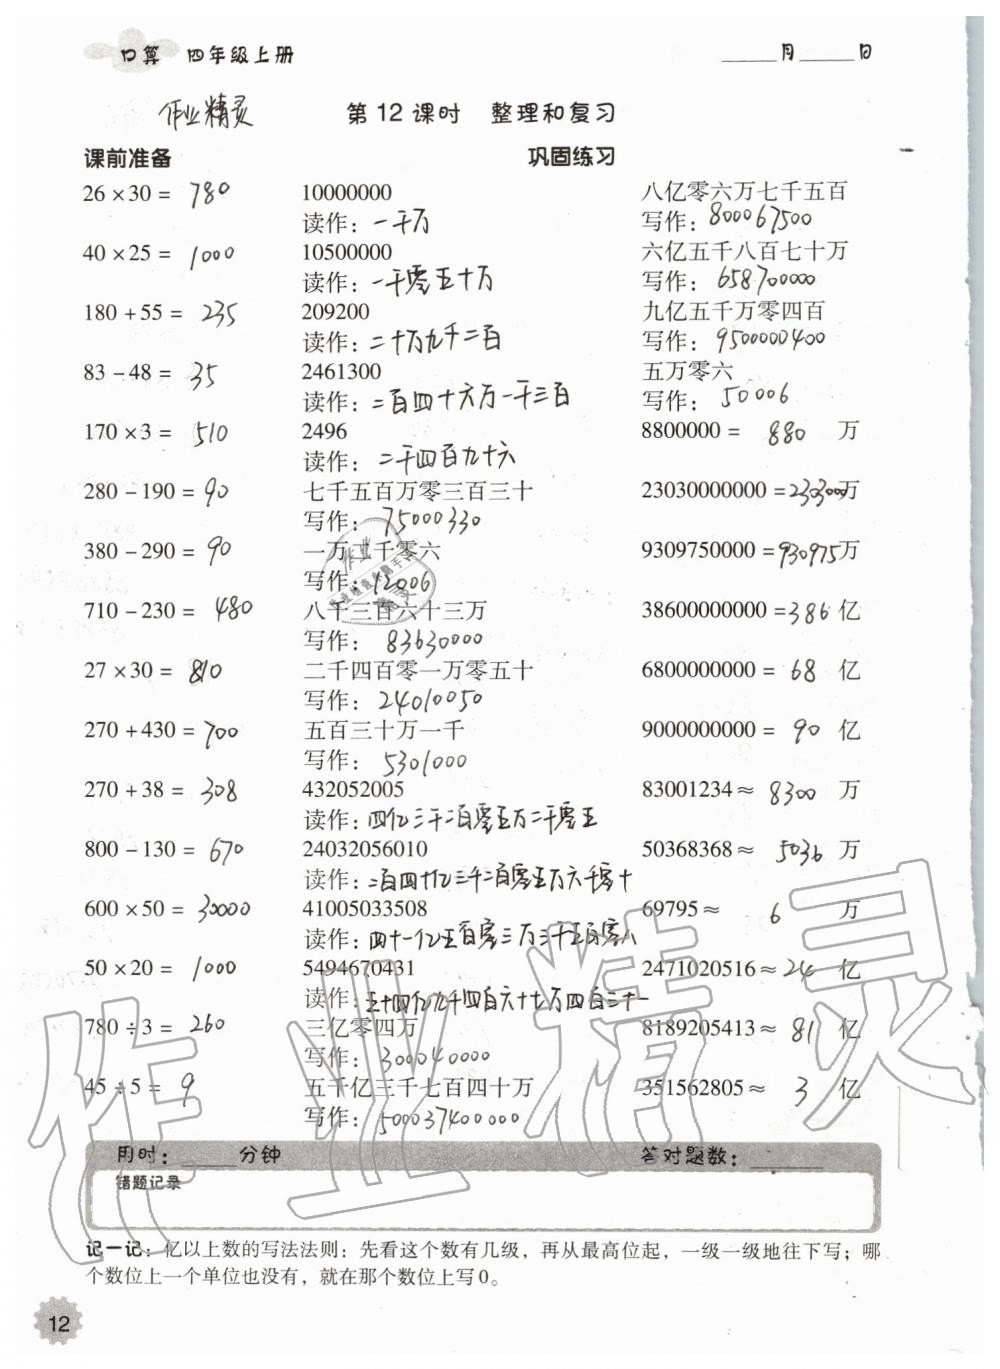 口算 四年级上册
月 日
作业精灵
第 12 课时 整理和复习
课前准备
巩固练习
26 × 30 = 780
40 × 25 = 1000
180 + 55 = 235
83 - 48 = 35
170 × 3 = 510
280 - 190 = 90
380 - 290 = 90
710 - 230 = 480
27 × 30 = 810
270 + 430 = 700
270 + 38 = 308
800 - 130 = 670
600 × 50 = 30000
50 × 20 = 1000
780 ÷ 3 = 260
45 ÷ 5 = 9
10000000
读作：一千万
10500000
读作：一千零五十万
209200
读作：二十万九千二百
2461300
读作：二百四十六万一千三百
2496
读作：二千四百九十六
七千五百万零三百三十
写作：75000330
一万二千零六
写作：12006
八千三百六十三万
写作：83630000
二千四百零一万零五十
写作：24010050
五百三十万一千
写作：5301000
432052005
读作：四亿三千二百零五万二千零五
24032056010
读作：二百四十亿三千二百零五万六千零十
41005033508
读作：四十一亿五百零三万三千五百零八
5494670431
读作：五十四亿九千四百六十七万四百三十一
三亿零四万
写作：300040000
五千亿三千七百四十万
写作：500037400000
八亿零六万七千五百
写作：800067500
六亿五千八百七十万
写作：658700000
九亿五千万零四百
写作：9500000400
五万零六
写作：50006
8800000 = 880 万
23030000000 = 2303000万
9309750000 = 930975万
38600000000 = 386 亿
6800000000 = 68 亿
9000000000 = 90 亿
83001234 ≈ 8300 万
50368368 ≈ 5036 万
69795 ≈ 6 万
2471020516 ≈ 24 亿
8189205413 ≈ 81 亿
351562805 ≈ 3 亿
用时： 分钟
答对题数：
错题记录
记一记：亿以上数的写法法则：先看这个数有几级，再从最高位起，一级一级地往下写；哪
个数位上一个单位也没有，就在那个数位上写0。
12
作业精灵